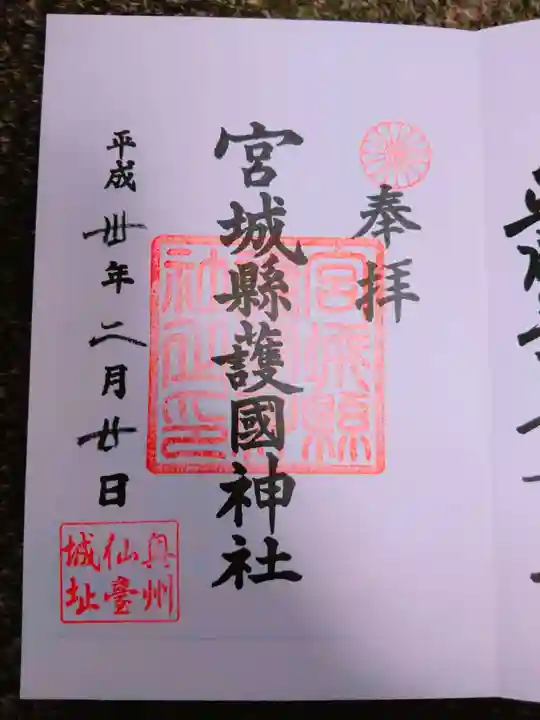 奉拝
宮城縣護國神社
宮城縣護國神社之印
平成丗年二月廿日
奥州
仙臺
城址